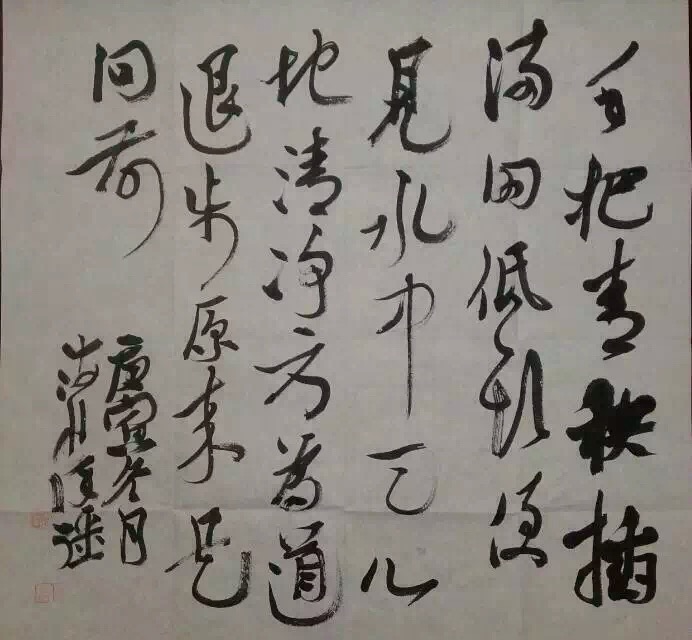 手把青秧插
满田低頭便
見水中天心
地清净方為道
退步原来是
向前
庚寅冬月